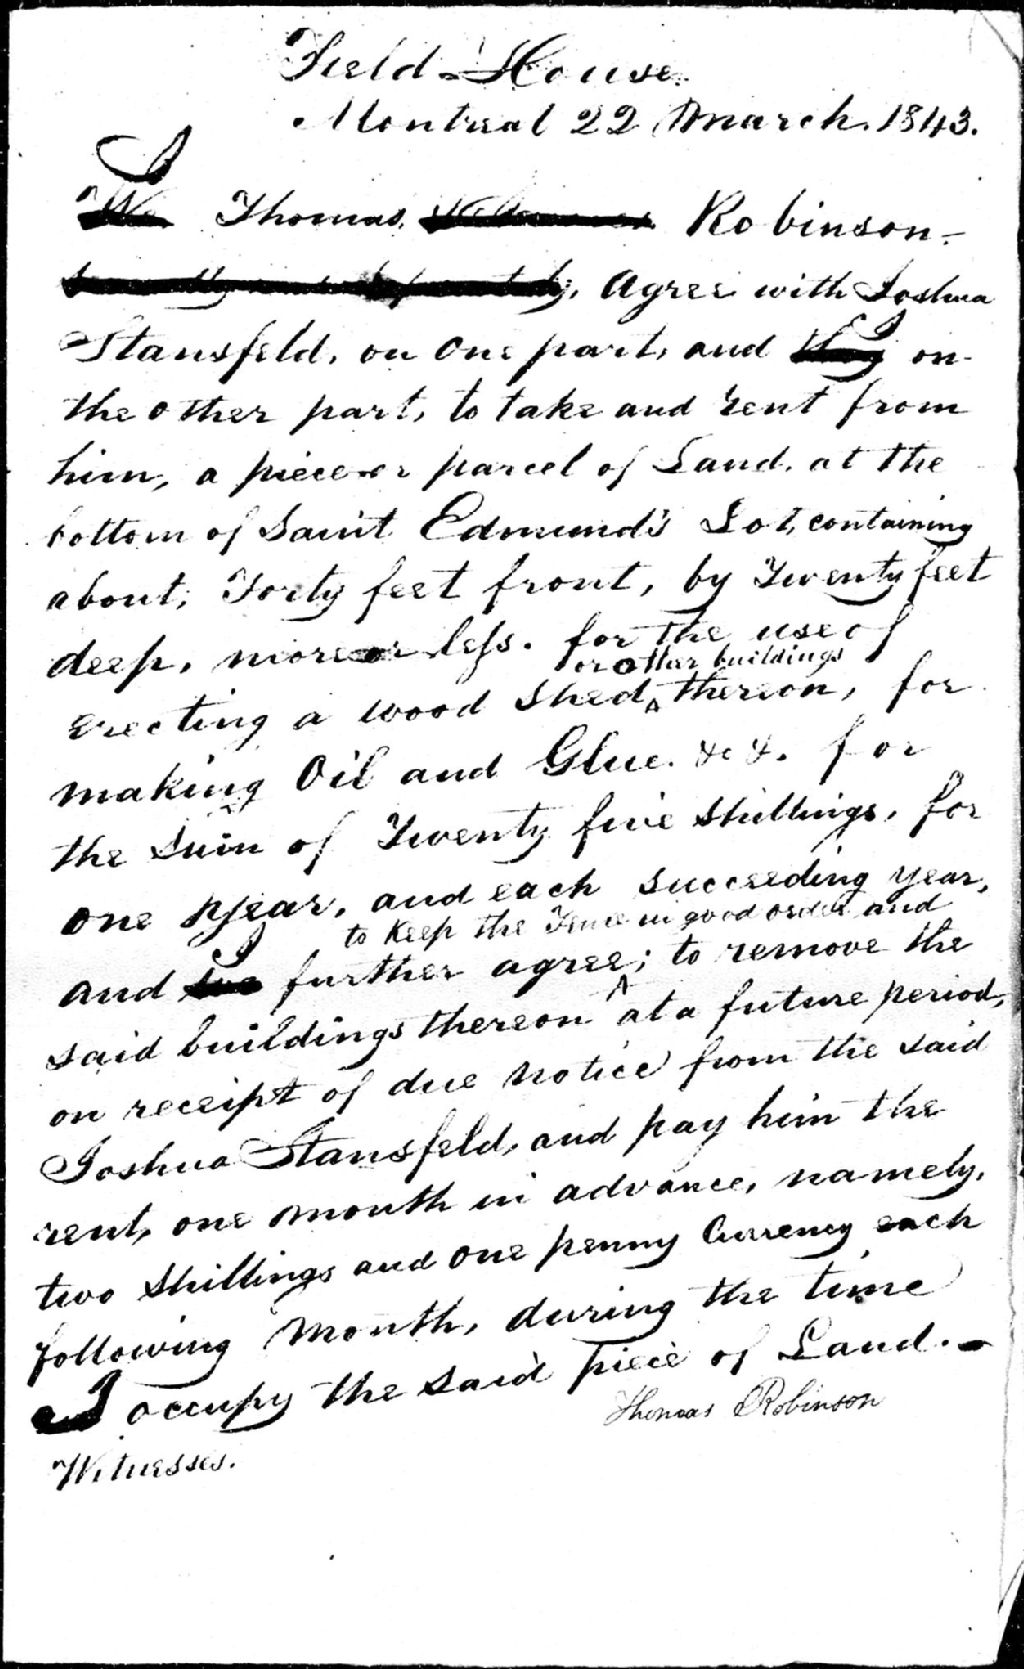 Field House.
Montreal 22 March. 1843.
I
We Thomas Robinson.
Agree with Joshua
Stansfeld, on one part, and they I on
the other part, to take and rent from
him, a piece or parcel of Land, at the
bottom of Saint Edmund's Lot, containing
about, Forty feet front, by Twenty feet
deep, more or less. for the use of
or other buildings
erecting a wood shed ^ thereon, for
making Oil and Glue. &c &. for
the Sum of Twenty five Shillings, for
one year, and each succeeding year,
to Keep the Fence in good order and
and we I further agree; ^ to remove the
said buildings thereon at a future period,
on receipt of due notice from the said
Joshua Stansfeld, and pay him the
rent, one month in advance, namely,
two Shillings and one penny Currency each
following Month, during the time
I occupy the said piece of Land.
Thomas Robinson
Witnesses.